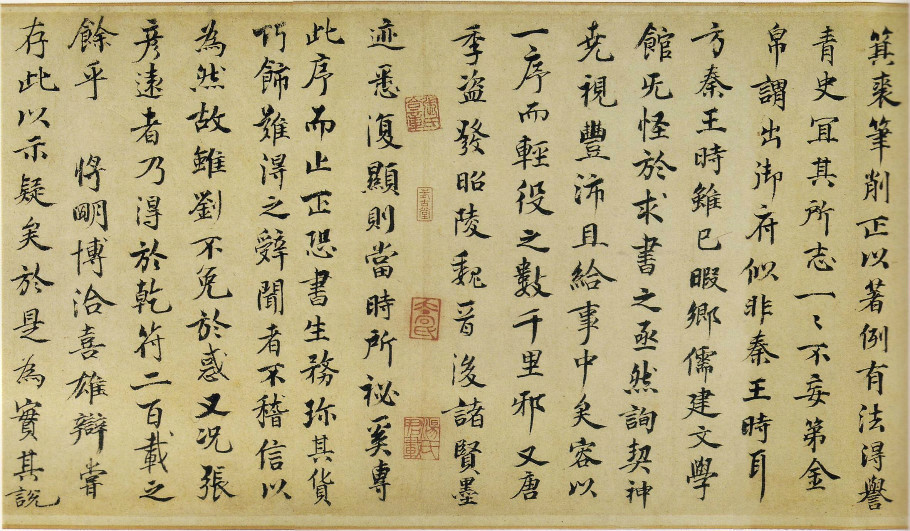 箕裘筆削正以著例有法得譽
青史冝其所志一〻不妄第金
帛謂出御府似非秦王時耳
方秦王時雖已暇鄉儒建文學
館旡怪於求書之亟然詢契神
尭視豐沛且給事中矣容以
一序而輕役之數千里邪又唐
季盜發昭陵魏晉後諸賢墨
迹悉復顯則當時所祕奚專
此序而止正恐書生務珎其貨
巧飾難得之辭聞者不稽信以
為然故雖劉不免於惑又況張
彦遠者乃得於乾符二百載之
餘乎 將明博洽喜雄辯嘗
存此以示疑矣於是為實其說